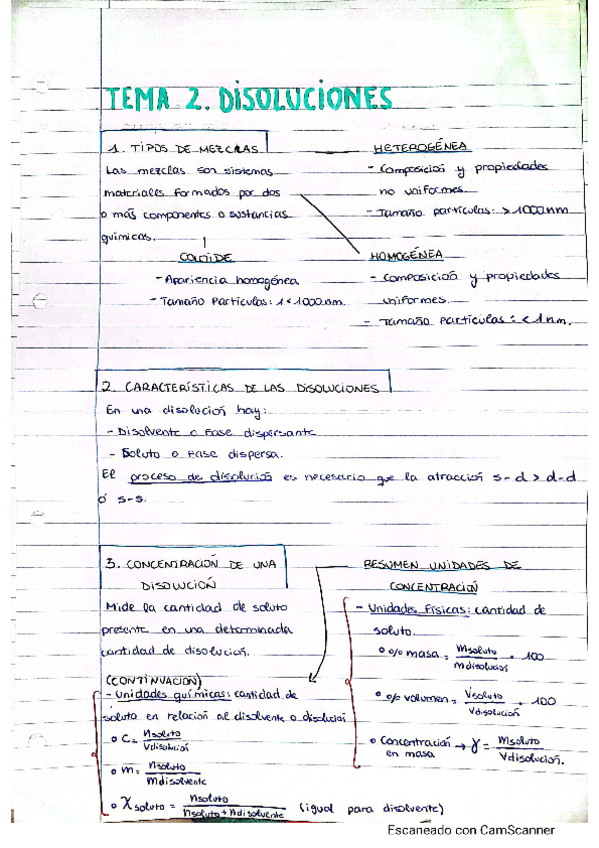 TEMA 2. DISOLUCIONES
1. TIPOS DE MEZCLAS
Las mezclas son sistemas
materiales formados por dos
o más componentes o sustancias
químicas.
HETEROGÉNEA
- Composición y propiedades
no uniformes.
- Tamaño partículas: > 1000nm
COLOIDE
- Apariencia homogénea
- Tamaño Partículas: 1 < 1000nm.
HOMOGÉNEA
- Composición y propiedades
uniformes.
- Tamaño Partículas: < 1nm.
2. CARACTERÍSTICAS DE LAS DISOLUCIONES
En una disolución hay:
- Disolvente o Fase dispersante
- Soluto o Fase dispersa.
El proceso de disolución es necesario que la atracción s-d > d-d
ó s-s.
3. CONCENTRACIÓN DE UNA
DISOLUCIÓN
Mide la cantidad de soluto
presente en una determinada
cantidad de disolución.
RESUMEN UNIDADES DE
CONCENTRACIÓN
- Unidades Físicas: cantidad de
soluto.
o % masa = msoluto / mdisolución · 100
o % volumen = Vsoluto / Vdisolución · 100
o Concentración en masa → γ = msoluto / Vdisolución.
(CONTINUACIÓN)
- Unidades químicas: cantidad de
soluto en relación al disolvente o disolución
o C = nsoluto / Vdisolución
o m = nsoluto / mdisolvente
o χsoluto = nsoluto / nsoluto + ndisolvente (igual para disolvente)
Escaneado con CamScanner